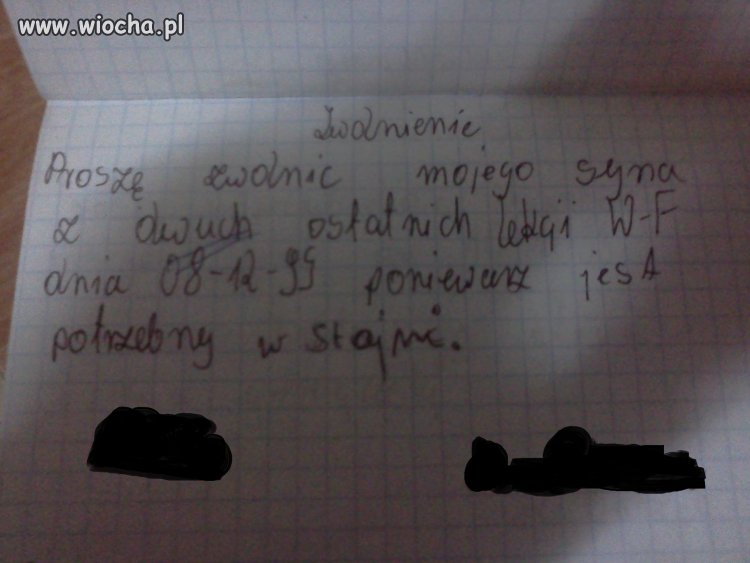 www.wiocha.pl
Zwolnienie
Proszę zwolnić mojego syna
z dwuch ostatnich lekcji W-F
dnia 08-12-99 poniewarz jest
potrzebny w stajni.